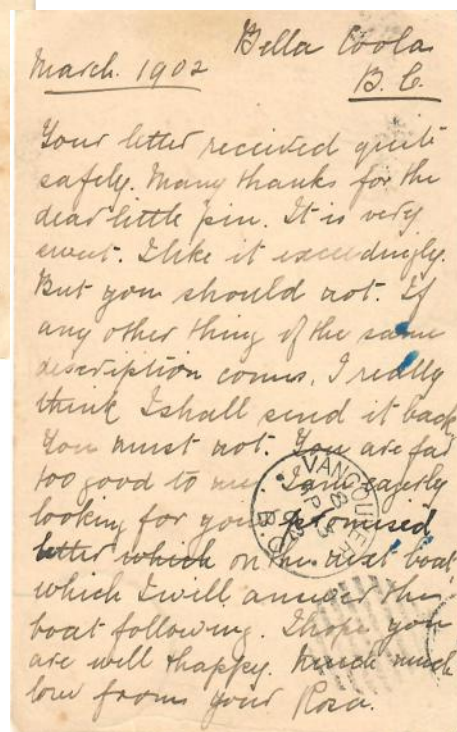 Bella Coola
March. 1902 B. C.
Your letter received quite
safely. Many thanks for the
dear little pin. It is very
sweet. I like it exceedingly.
But you should not. If
any other thing of the same
description comes, I really
think I shall send it back
You must not. You are far
too good to me I am eagerly
looking for your promised
letter which on the next boat
which I will answer the
boat following. I hope you
are well & happy. Much much
love from your Rosa.
VANCOUVER
B.C.